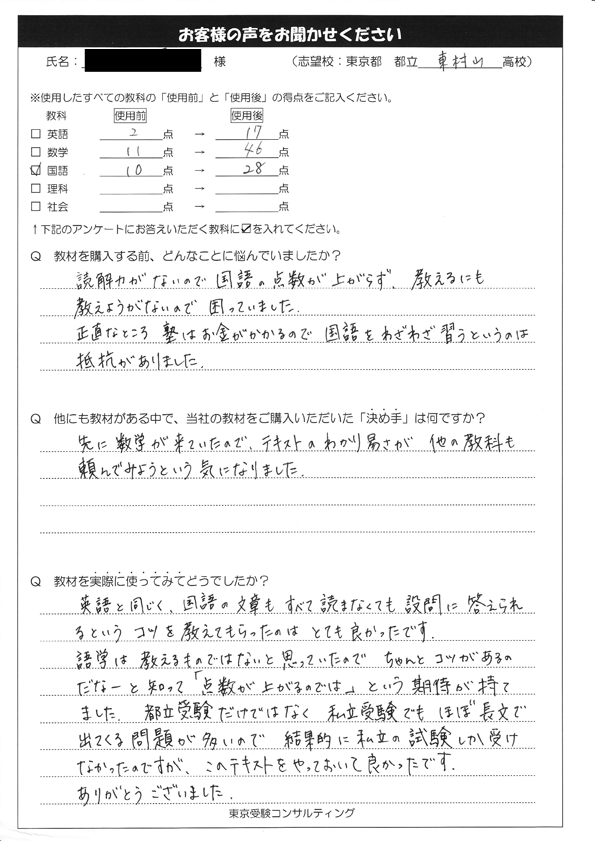 お客様の声をお聞かせください
氏名： 様 （志望校：東京都 都立 東村山 高校）
※使用したすべての教科の「使用前」と「使用後」の得点をご記入ください。
教科 使用前 使用後
□ 英語 2 点 → 17 点
□ 数学 11 点 → 46 点
☑ 国語 10 点 → 28 点
□ 理科 点 → 点
□ 社会 点 → 点
↑下記のアンケートにお答えいただく教科に☑を入れてください。
Q 教材を購入する前、どんなことに悩んでいましたか？
読解力がないので 国語の点数が上がらず、教えるにも
教えようがないので 困っていました.
正直なところ 塾はお金がかかるので 国語をわざわざ習うというのは
抵抗がありました.
Q 他にも教材がある中で、当社の教材をご購入いただいた「決め手」は何ですか？
先に数学が来ていたので、テキストのわかり易さが 他の教科も
頼んでみようという気になりました.
Q 教材を実際に使ってみてどうでしたか？
英語と同じく、国語の文章も すべて読まなくても 設問に 答えられ
るという コツを教えてもらったのは とても良かったです.
語学は 教えるものではないと思っていたので ちゃんとコツがあるの
だなーと知って「点数が上がるのでは」という期待が持て
ました. 都立受験だけではなく 私立受験でも ほぼ長文で
出てくる問題が多いので 結果的に私立の試験しか受け
なかったのですが、このテキストをやっておいて良かったです.
ありがとうございました.
東京受験コンサルティング